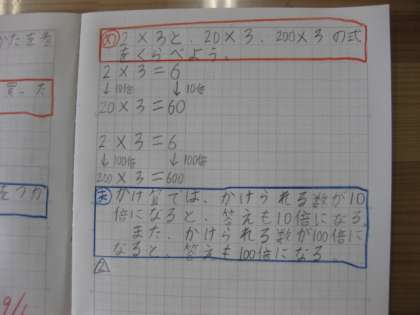 かたを考
買った
をつか
9/1
め 2×3と、20×3、200×3の式
をくらべよう。
2×3=6
↓10倍 ↓10倍
20×3=60
2×3=6
↓100倍 ↓100倍
200×3=600
ま かけ算では、かけられる数が10
倍になると、答えも10倍になる。
また、かけられる数が100倍に
なると、答えも100倍になる。